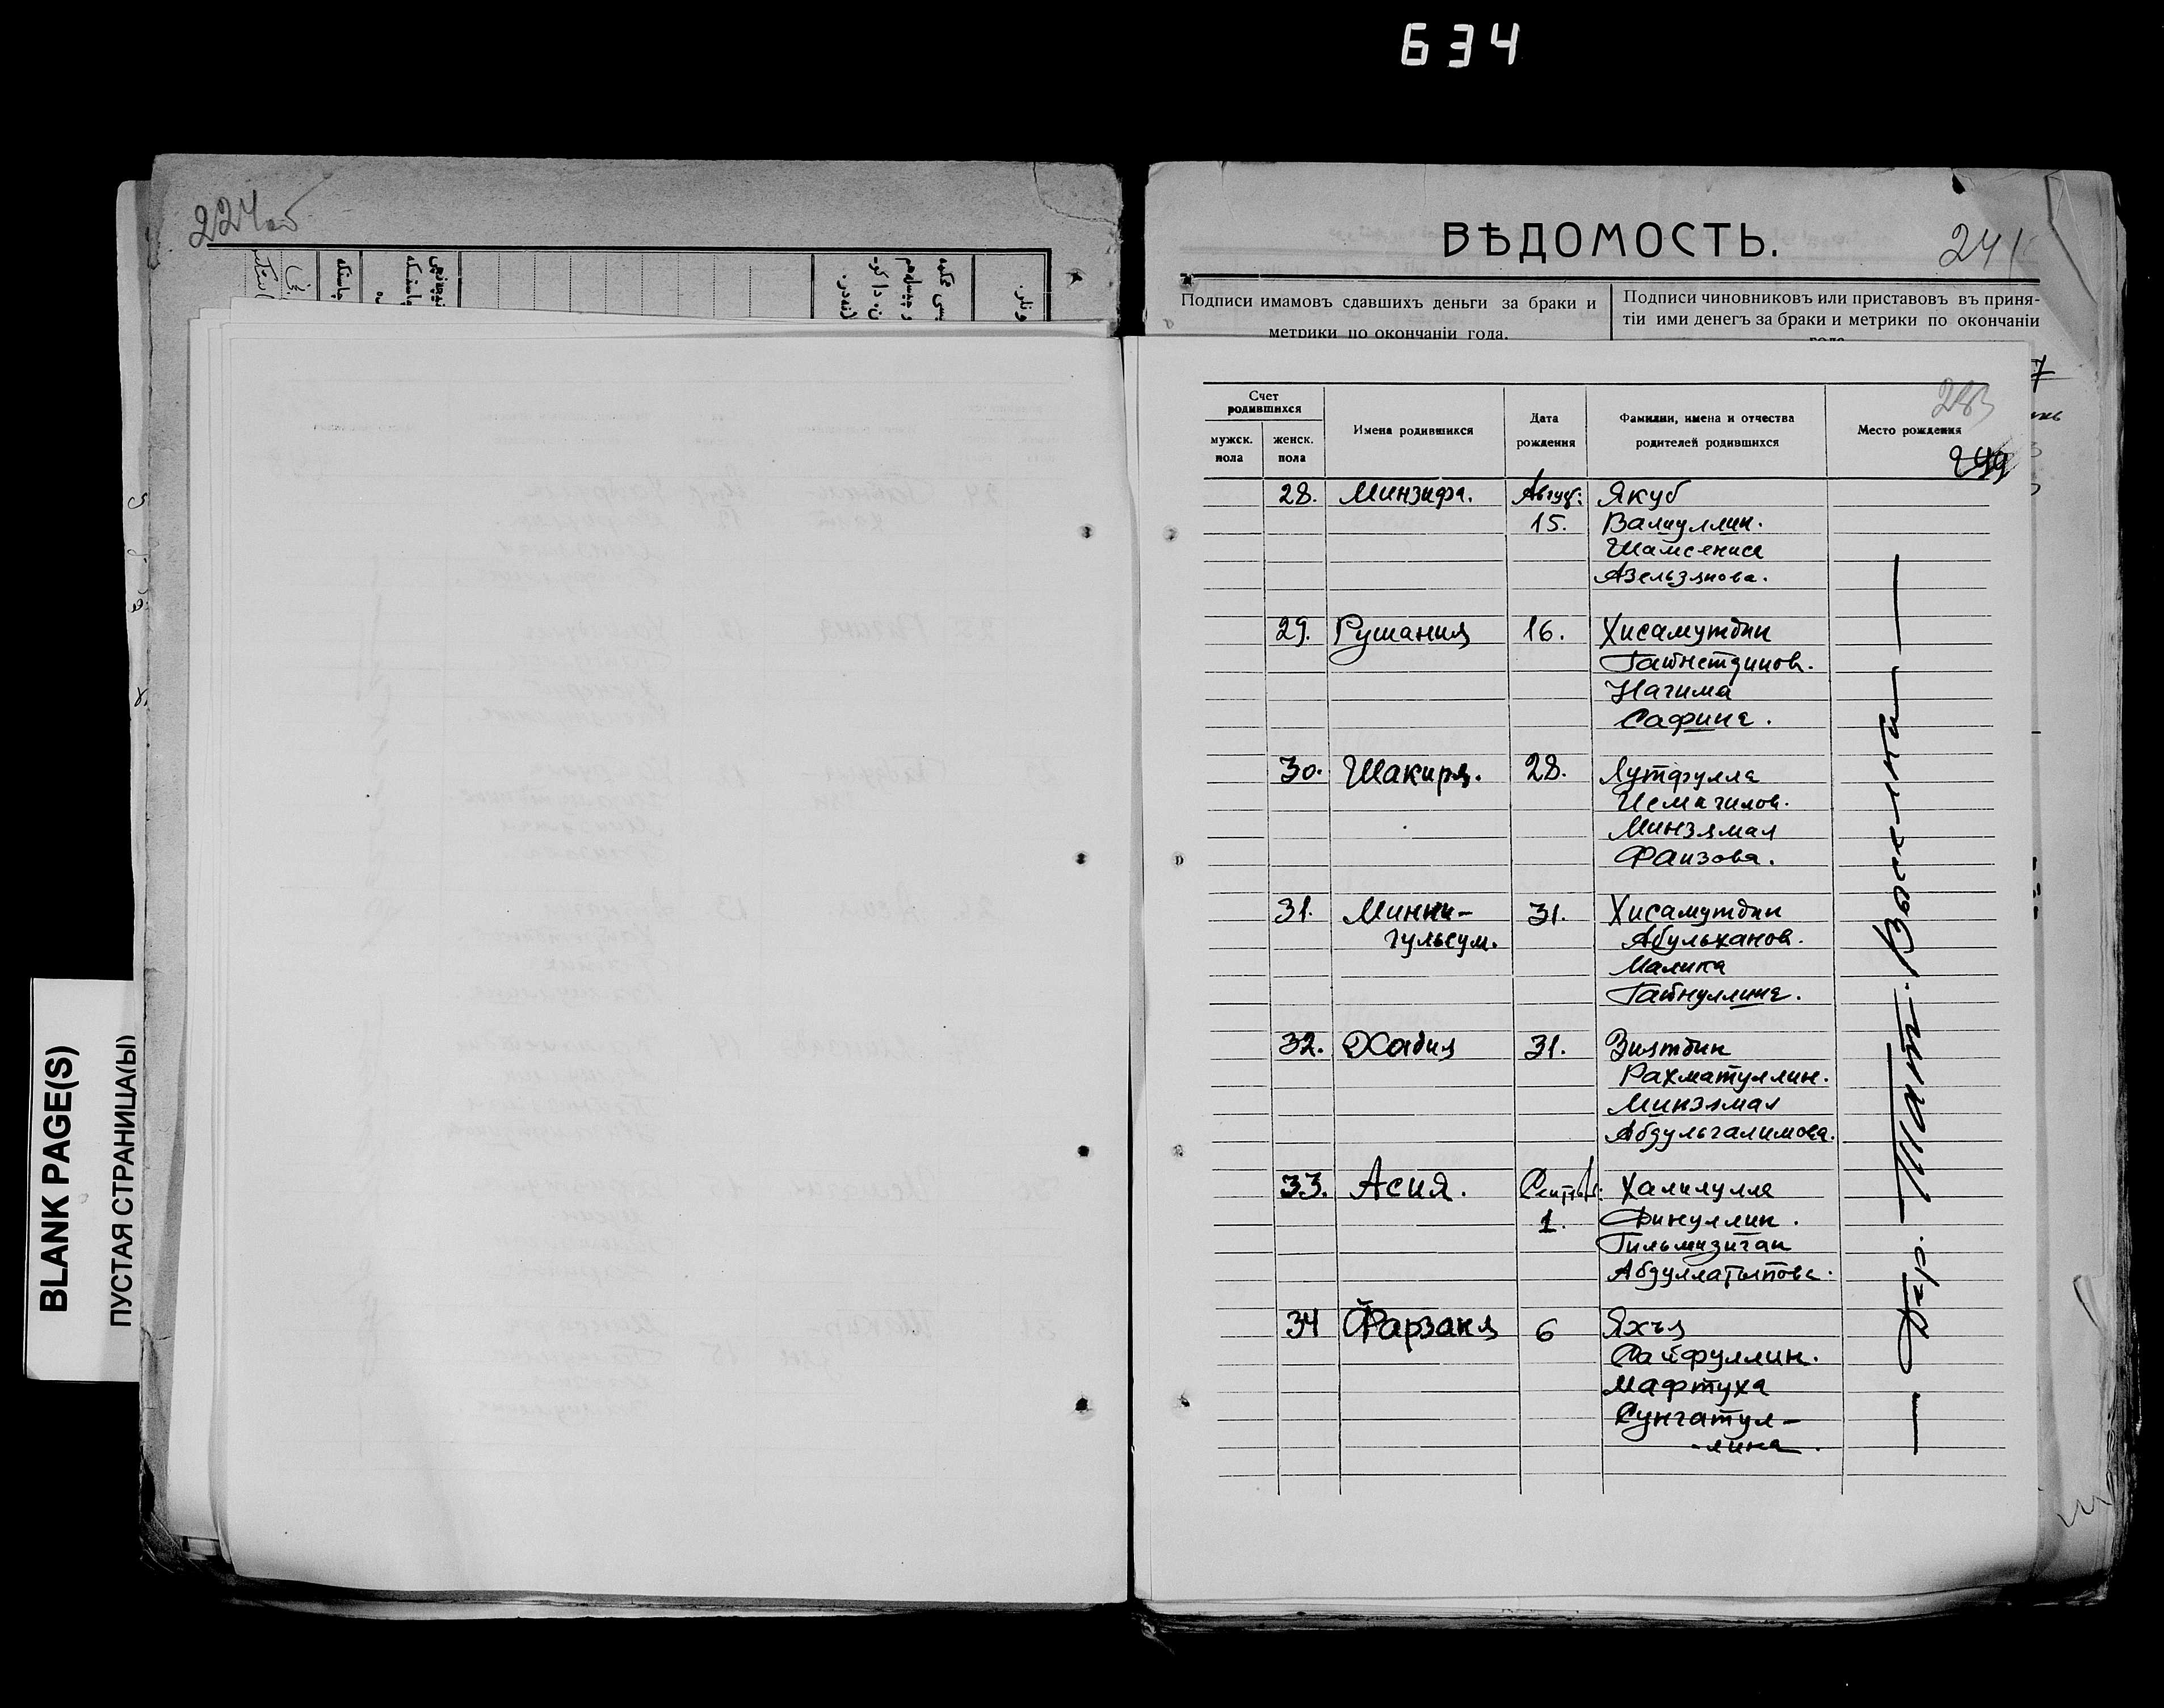 634
224об
ВѢДОМОСТЬ.
241
Подписи имамовъ сдавшихъ деньги за браки и
метрики по окончаніи года.
Подписи чиновниковъ или приставовъ въ приня-
тіи ими денегъ за браки и метрики по окончаніи
года
Счет
родившихся
мужск.
пола
женск.
пола
Имена родившихся
Дата
рождения
Фамилии, имена и отчества
родителей родившихся
Место рождения
28. Минзифа. Август: Якуб
15. Валиуллин.
Шамсениса
Азельзянова.
29. Рушания 16. Хисамутдин
Гайнетдинов.
Нагима
Сафина.
30. Шакиря. 28. Лутфулла
Исмагилов.
Минзямал
Фаизова.
31. Минни- 31. Хисамутдин
гульсум. Абульханов.
Малика
Гайнуллина.
32. Хадия 31. Зиятдин
Рахматуллин.
Минзямал
Абдулгалимова.
33. Асия. Сентяб: Халилулла
1. Финуллин.
Гильмизиган
Абдуллатыпова.
34 Фарзаня 6 Яхъя
Сайфуллин.
Мафтуха
Сунгатул-
-лина.
— дер. Тат.
BLANK PAGE(S)
ПУСТАЯ СТРАНИЦА(Ы)